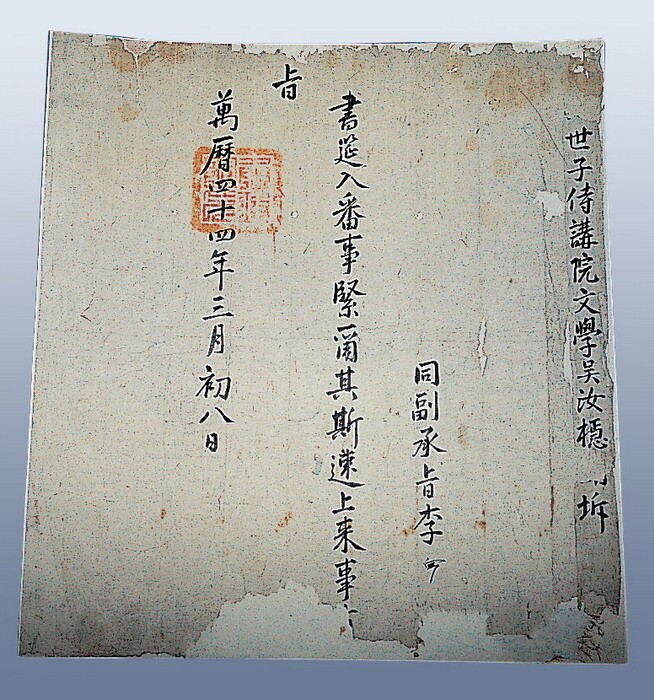 世子侍講院文學吳汝穩 開坼
同副承旨李
書筵入番事緊爾其斯速上來事
旨
萬曆四十四年三月初八日